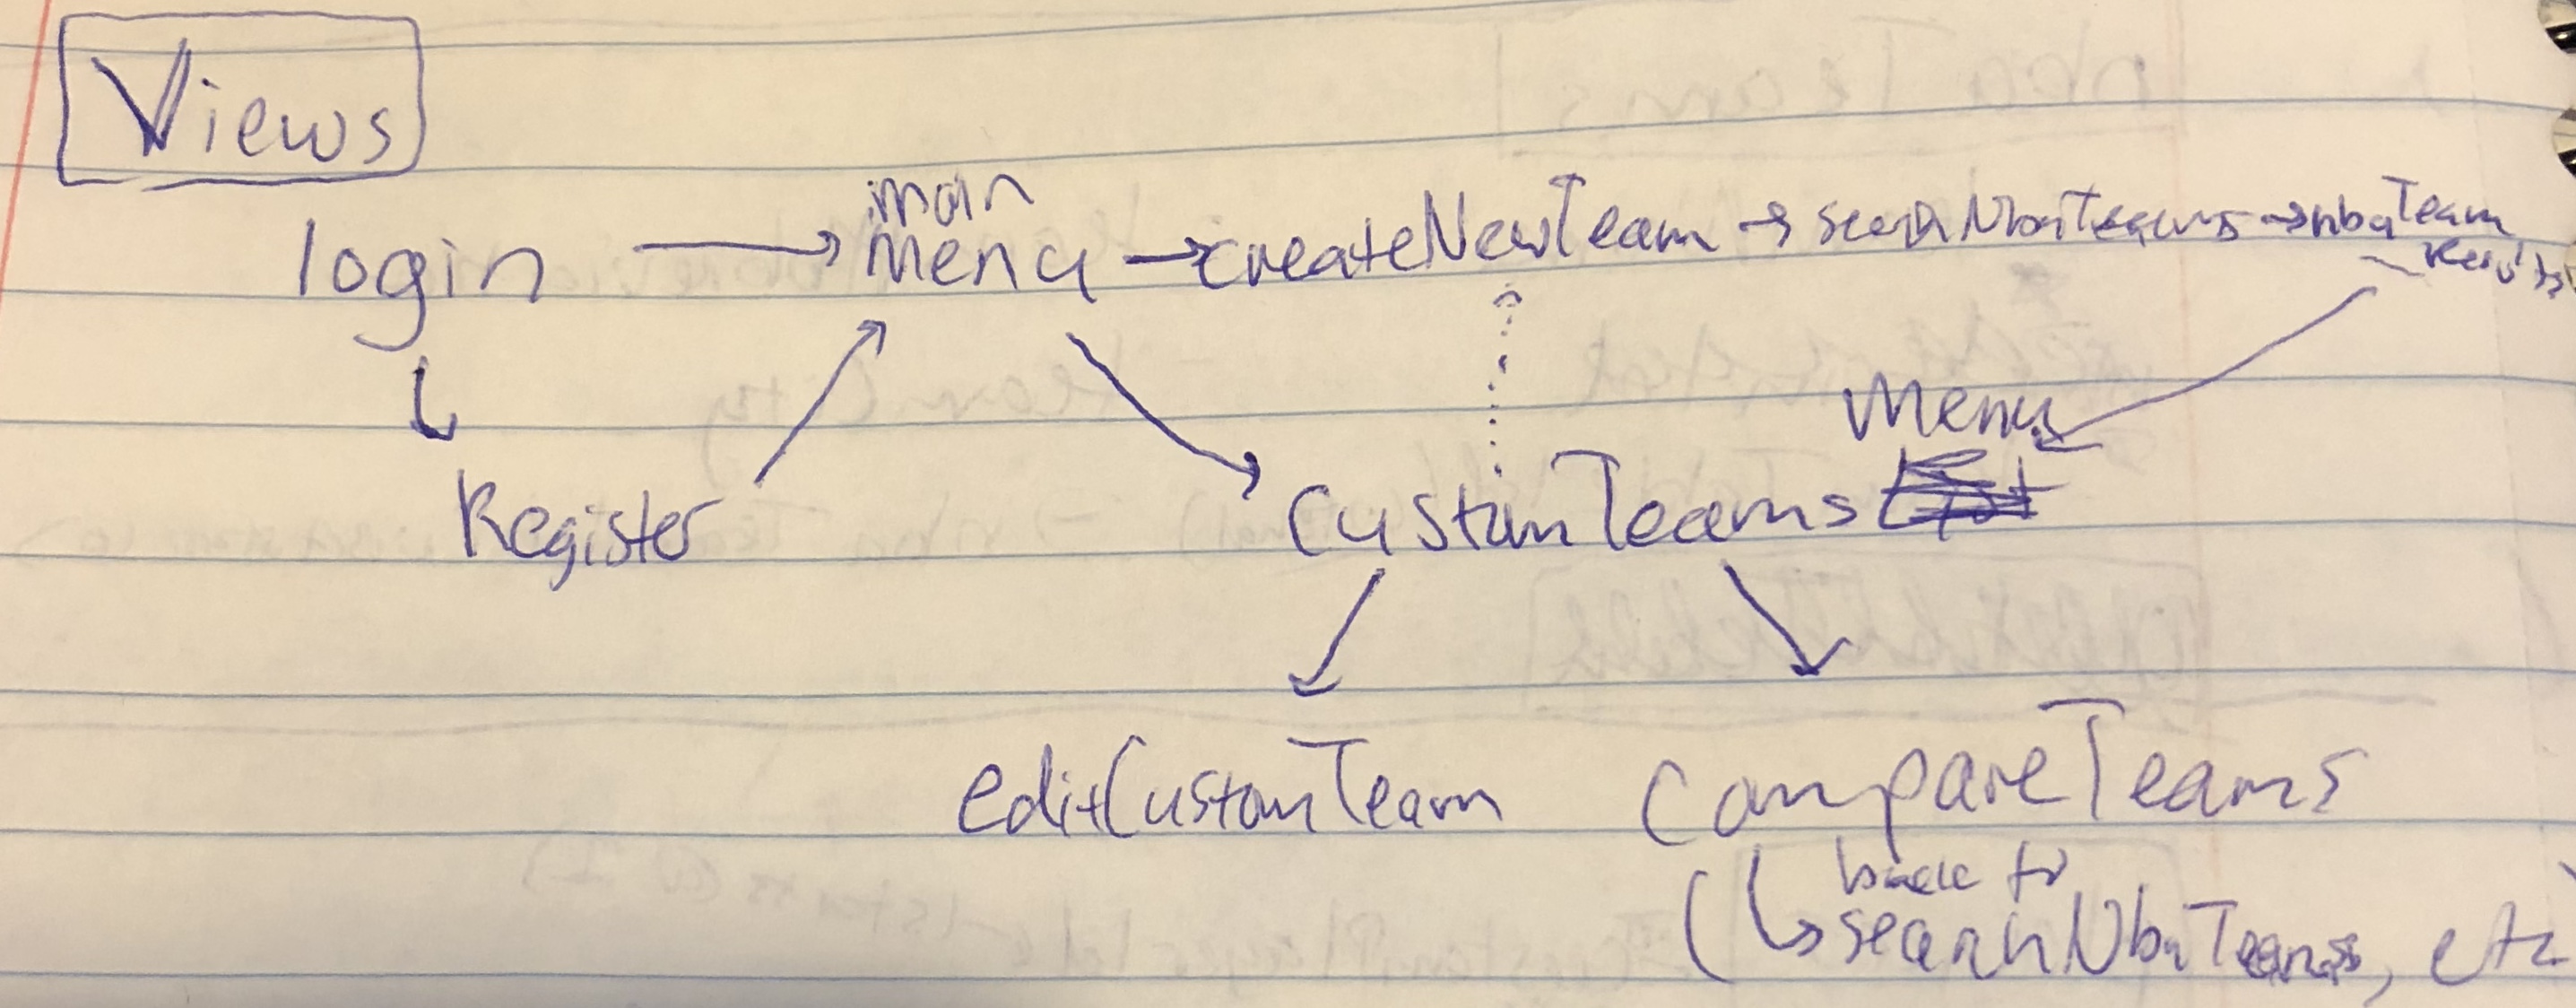 Views
login → main menu → createNewTeam → searchNbaTeams → nbaTeam Results
Register
customTeams Menu
editCustomTeam compareTeams
( ↳ back to searchNbaTeams, etc )